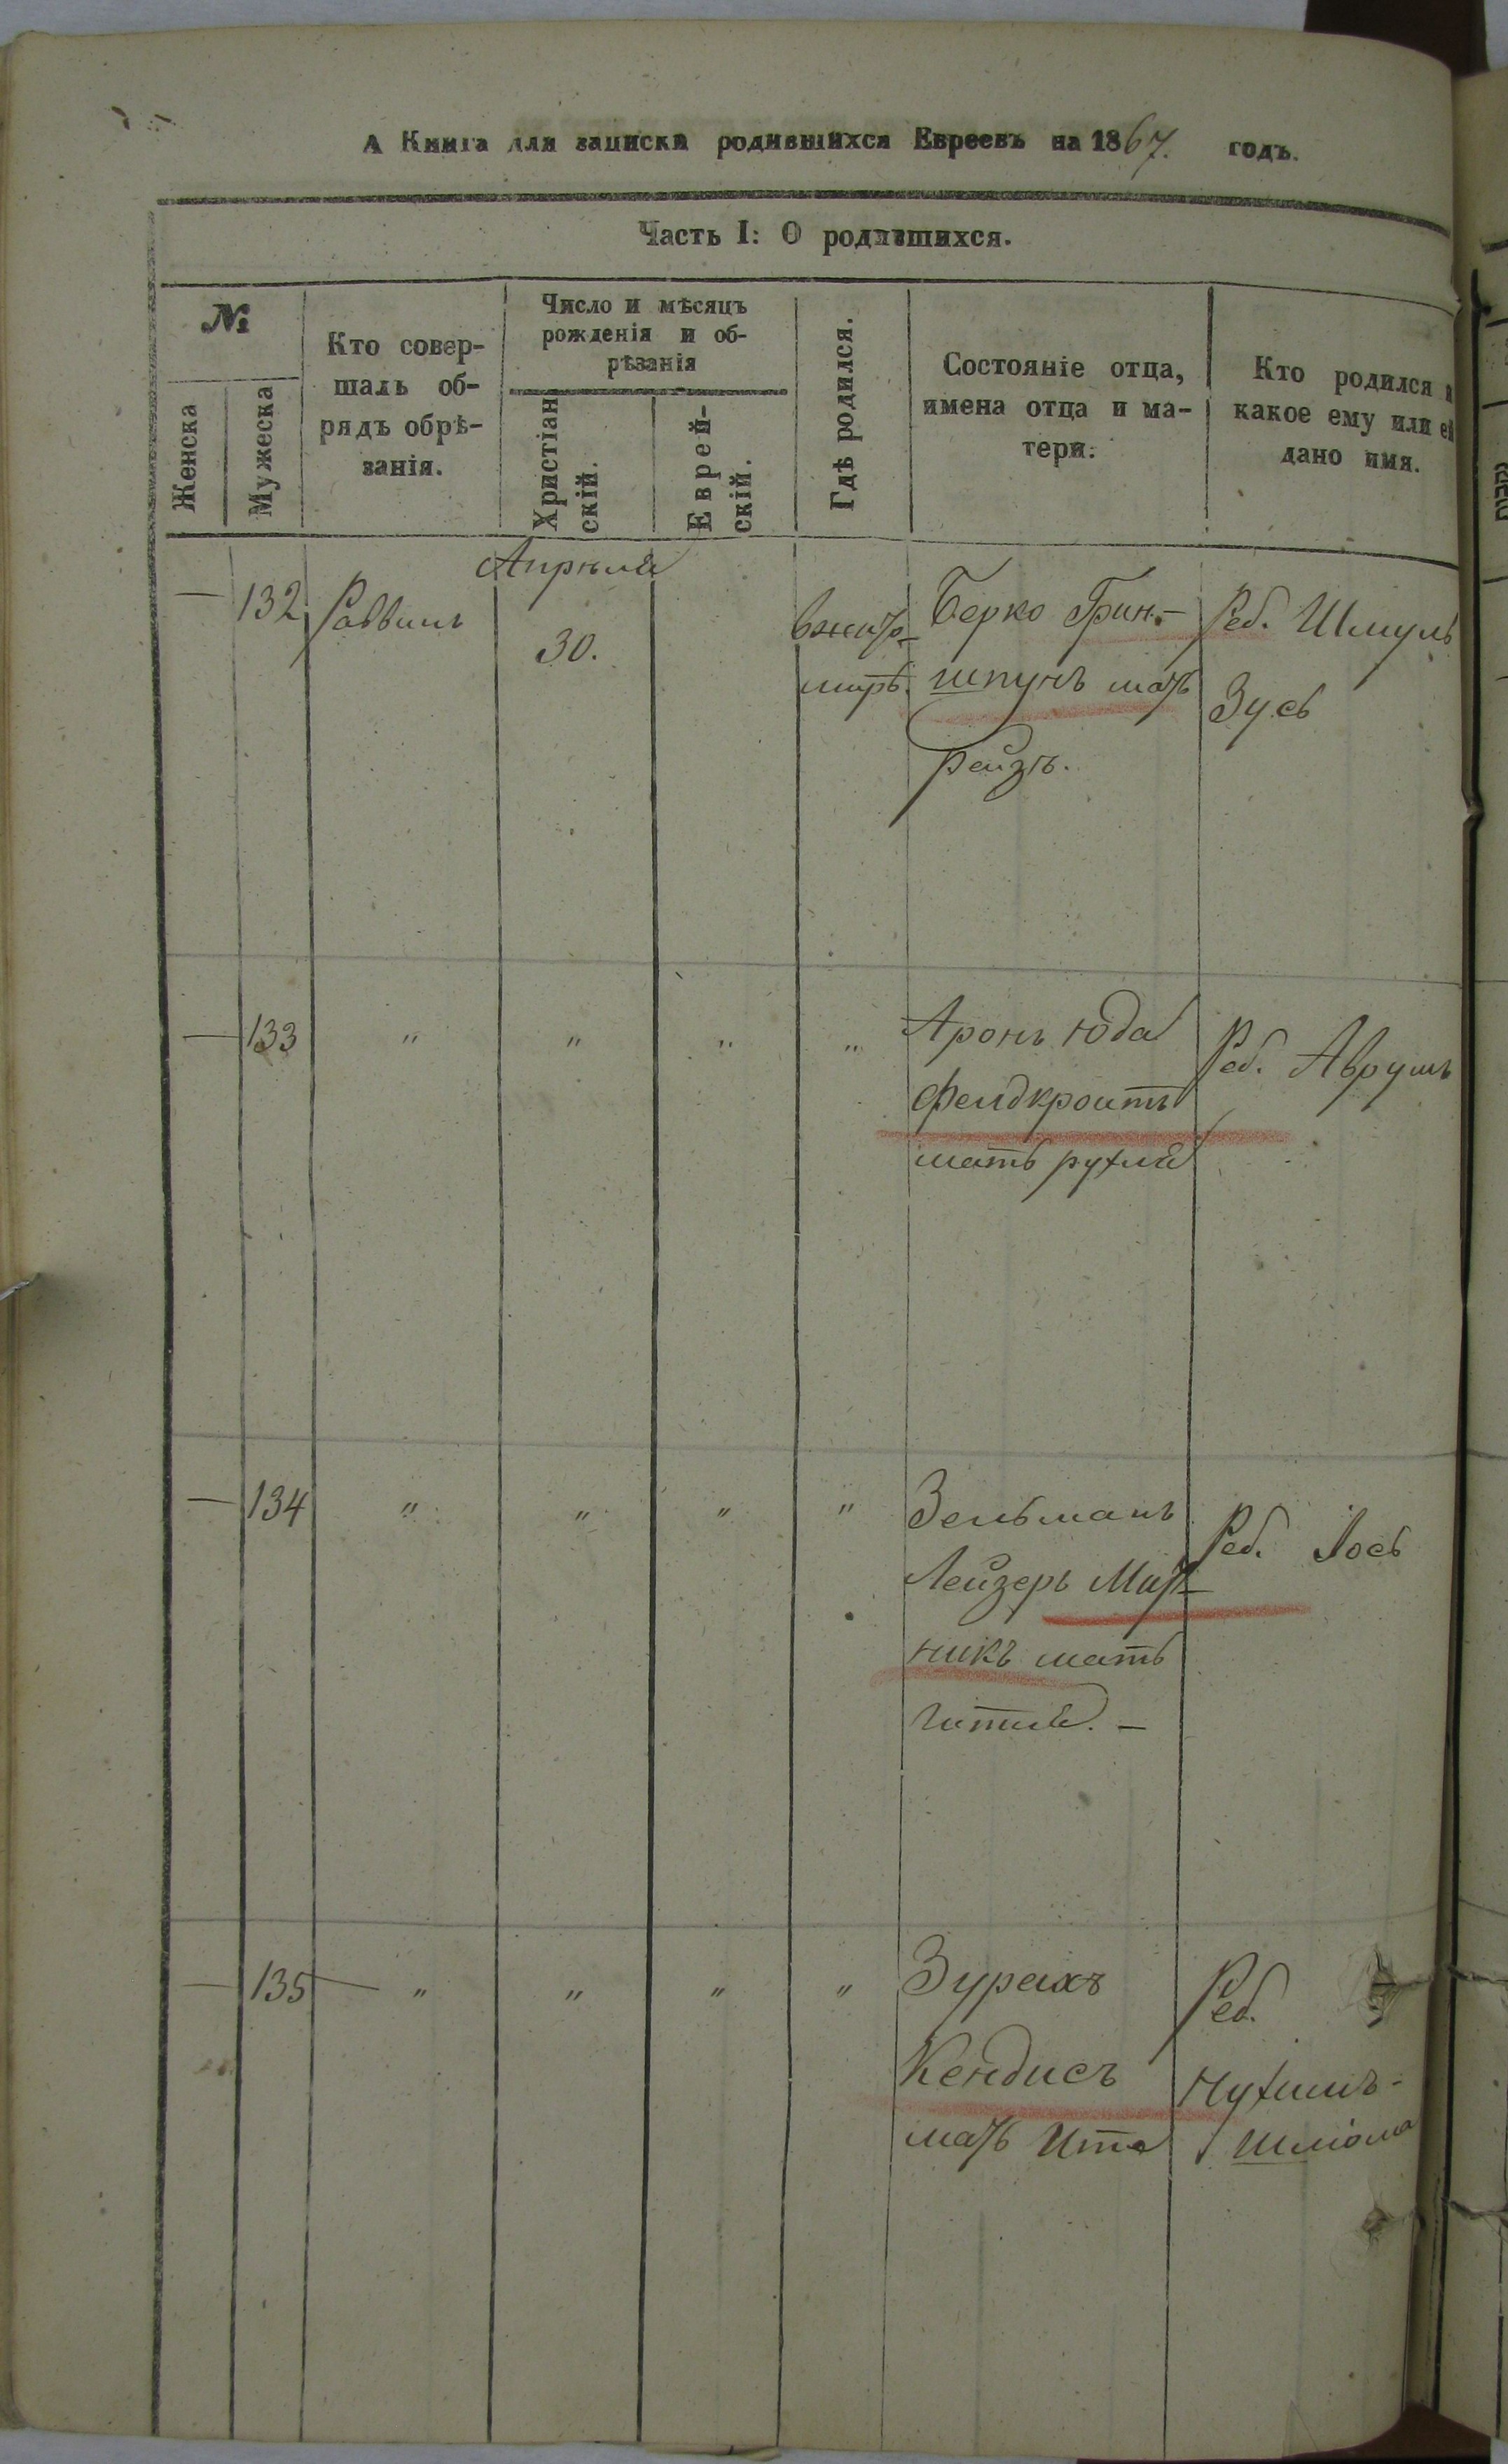 А Книга для записки родившихся Евреевъ на 1867. годъ.
Часть I: О родившихся.
№
Женска
Мужеска
Кто совер-
шалъ об-
рядъ обрѣ-
занія.
Число и мѣсяцъ
рожденія и об-
рѣзанія
Христіан
скій.
Еврей-
скій.
Гдѣ родился.
Состояніе отца,
имена отца и ма-
тери.
Кто родился и
какое ему или ей
дано имя.
Апрѣля
— 132 Раввинъ 30.
вжито-
мирѣ.
Берко Грин-
шпунъ мать
рейзъ.
Реб. Шмуль
Зусь
— 133 " " " "
Аронъ юда
фелдкроитъ
мать рухля
Реб. Аврумъ
— 134 " " " "
Зельманъ
Лейзеръ Мит-
никъ мать
гитля. —
Реб. Іось
— 135 — " " " "
Зурахъ
Кендисъ
мать Ита
Реб.
Нухимъ-
Шліома